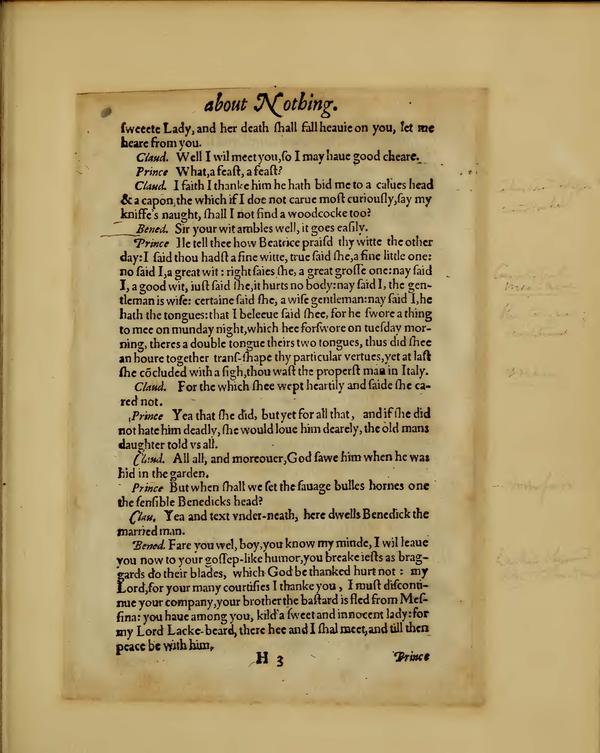 about Nothing.
ſweete Lady, and her death ſhall fall heauie on you, let me
heare from you.
Claud. Well I wil meet you, ſo I may haue good cheare.
Prince What, a feaſt, a feaſt?
Claud. I faith I thanke him he hath bid me to a calues head
& a capon, the which if I doe not carue moſt curiouſly, ſay my
kniffe's naught, ſhall I not find a woodcocke too?
Bened. Sir your wit ambles well, it goes eaſily.
Prince Ile tell thee how Beatrice praiſd thy witte the other
day: I ſaid thou hadſt a fine witte, true ſaid ſhe, a fine little one:
no ſaid I, a great wit: right ſaies ſhe, a great groſſe one: nay ſaid
I, a good wit, iuſt ſaid ſhe, it hurts no body: nay ſaid I, the gen-
tleman is wiſe: certaine ſaid ſhe, a wiſe gentleman: nay ſaid I, he
hath the tongues: that I beleeue ſaid ſhee, for he ſwore a thing
to mee on munday night, which hee forſwore on tueſday mor-
ning, theres a double tongue theirs two tongues, thus did ſhee
an houre together tranſ-ſhape thy particular vertues, yet at laſt
ſhe cōcluded with a ſigh, thou waſt the properſt man in Italy.
Claud. For the which ſhee wept heartily and ſaide ſhe ca-
red not.
Prince Yea that ſhe did, but yet for all that, and if ſhe did
not hate him deadly, ſhe would loue him dearely, the old mans
daughter told vs all.
Claud. All all, and moreouer, God ſawe him when he was
hid in the garden.
Prince But when ſhall we ſet the ſauage bulles hornes one
the ſenſible Benedicks head?
Clau. Yea and text vnder-neath, here dwells Benedick the
married man.
Bened. Fare you wel, boy, you know my minde, I wil leaue
you now to your goſſep-like humor, you breake ieſts as brag-
gards do their blades, which God be thanked hurt not: my
Lord, for your many courtiſies I thanke you, I muſt diſconti-
nue your company, your brother the baſtard is fled from Meſ-
ſina: you haue among you, kild a ſweet and innocent lady: for
my Lord Lacke-beard, there hee and I ſhal meet, and till then
peace be with him,
H 3
Prince